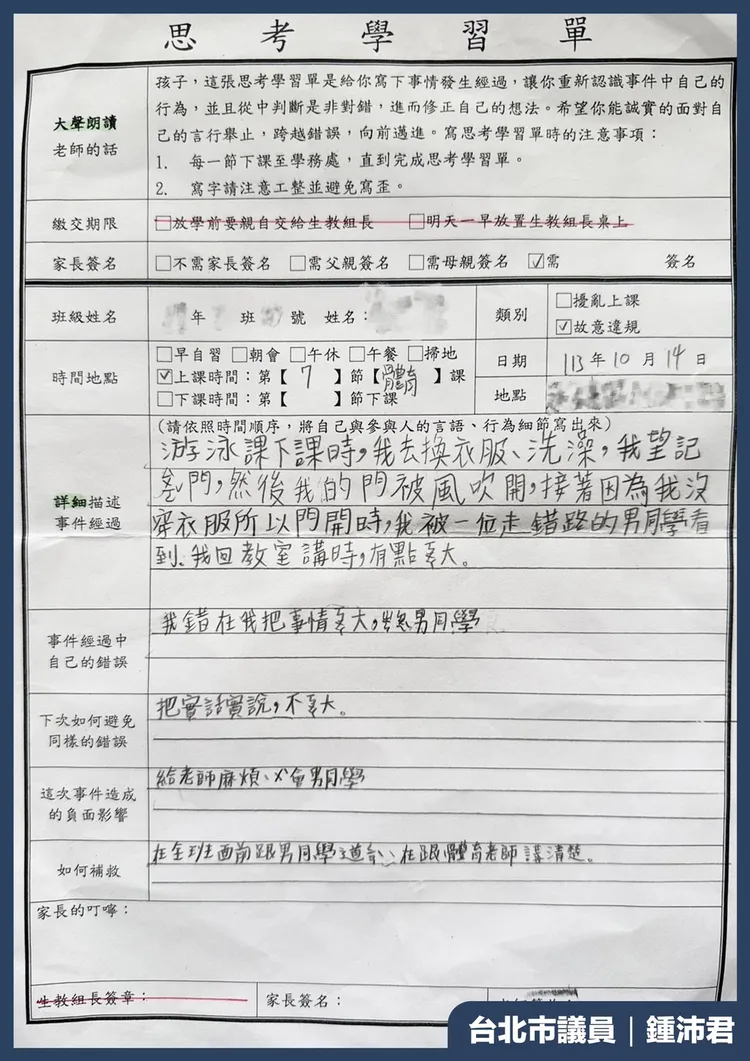 思考學習單
大聲朗讀
老師的話
孩子，這張思考學習單是給你寫下事情發生經過，讓你重新認識事件中自己的
行為，並且從中判斷是非對錯，進而修正自己的想法。希望你能誠實的面對自
己的言行舉止，跨越錯誤，向前邁進。寫思考學習單時的注意事項：
1. 每一節下課至學務處，直到完成思考學習單。
2. 寫字請注意工整並避免寫歪。
繳交期限 □放學前要親自交給生教組長 □明天一早放置生教組長桌上
家長簽名 □不需家長簽名 □需父親簽名 □需母親簽名 ☑需 簽名
班級姓名 年 班 號 姓名：
類別 □擾亂上課
☑故意違規
時間地點
□早自習 □朝會 □午休 □午餐 □掃地
☑上課時間：第【 7 】節【體育】課
□下課時間：第【 】節下課
日期 113年10月14日
地點
詳細描述
事件經過
(請依照時間順序，將自己與參與人的言語、行為細節寫出來)
游泳課下課時，我去換衣服、洗澡，我望記
門，然後我的門被風吹開，接著因為我沒
穿衣服所以門開時，我被一位走錯路的男同學看
到。我回教室講時，有點大。
事件經過中
自己的錯誤
我錯在我把事情大，男同學
下次如何避免
同樣的錯誤
把實話實說，不大。
這次事件造成
的負面影響
給老師麻煩、男同學
如何補救
在全班面前跟男同學道、在跟體育老師講清楚。
家長的叮嚀：
生教組長簽章：
家長簽名：
台北市議員｜鍾沛君